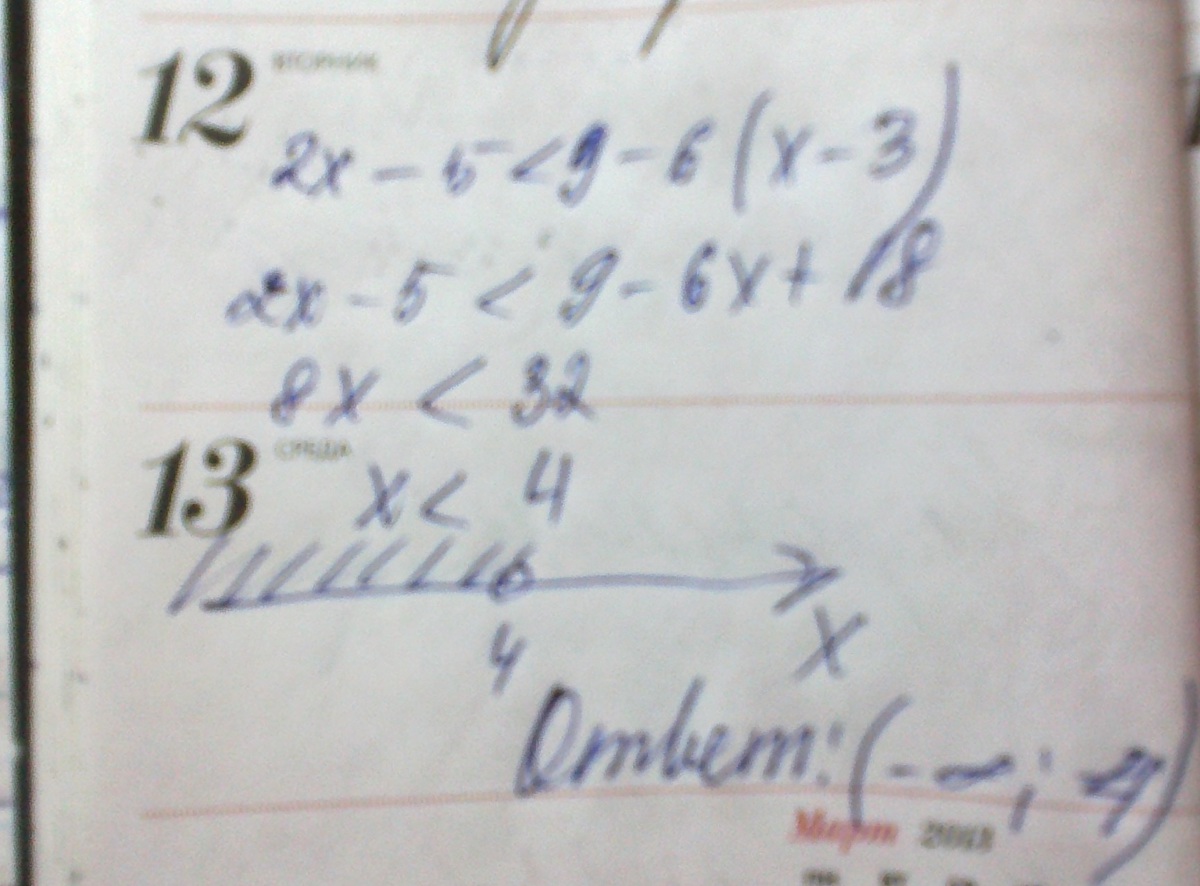 12 ВТОРНИК
2x - 5 < 9 - 6 (x - 3)
2x - 5 < 9 - 6x + 18
8x < 32
13 СРЕДА
x < 4
4
x
Ответ: (-∞; 4)
Март 2013